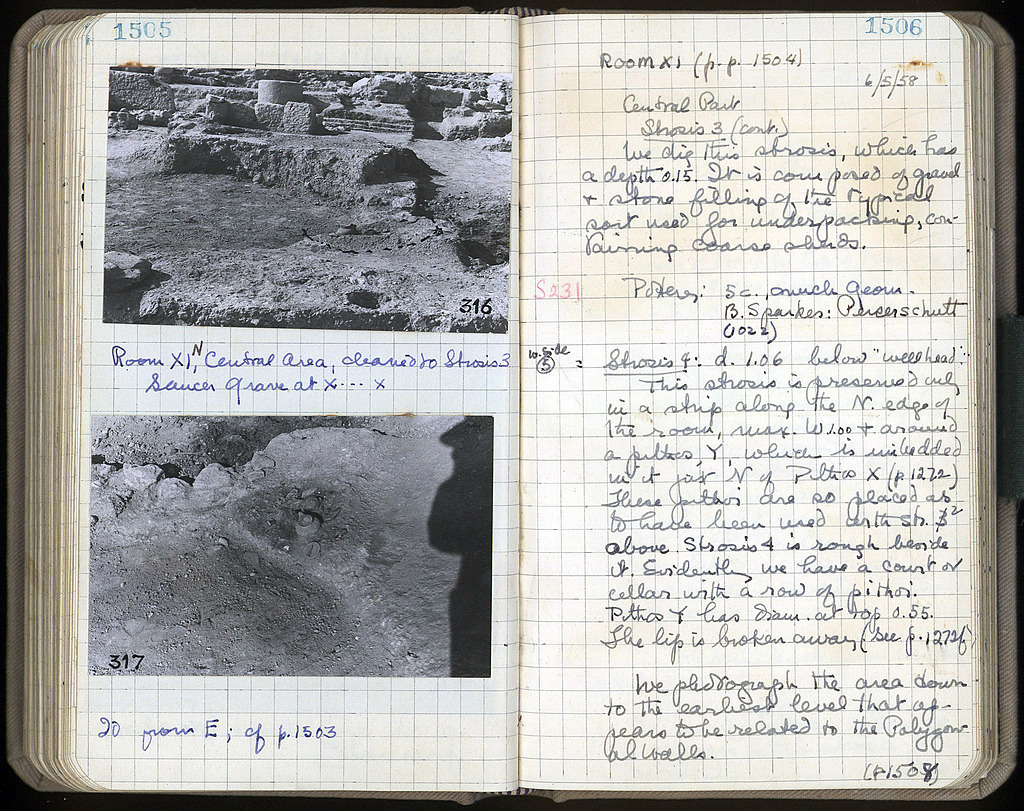 1505
316
Room XI, N Central Area, cleaned to Strosis 3
Saucer grave at x---- x
317
Do from E; cf p. 1503
1506
Room XI (p. p. 1504)
6/5/58
Central Part
Strosis 3 (cont.)
We dig this strosis, which has
a depth 0.15. It is composed of gravel
+ stone filling of the typical
sort used for underpacking, con-
taining coarse sherds.
S231
Pottery: 5 c., much Geom.
B. Sparkes: Perserschutt
(1022)
W. side
⑤ = Strosis 4: d. 1.06 below "well head".
This strosis is preserved only
in a strip along the N. edge of
the room, max. W 1.00 + around
a pithos, Y, which is imbedded
in it just N of Pithos X (p. 1272)
These pithoi are so placed as
to have been used with Str. 2
above. Strosis 4 is rough beside
it. Evidently we have a court or
cellar with a row of pithoi.
Pithos Y has diam. at top 0.55.
The lip is broken away (see p. 1272f)
We photograph the area down
to the earliest level that ap-
pears to be related to the Polygon-
al walls.
(p. 1508)